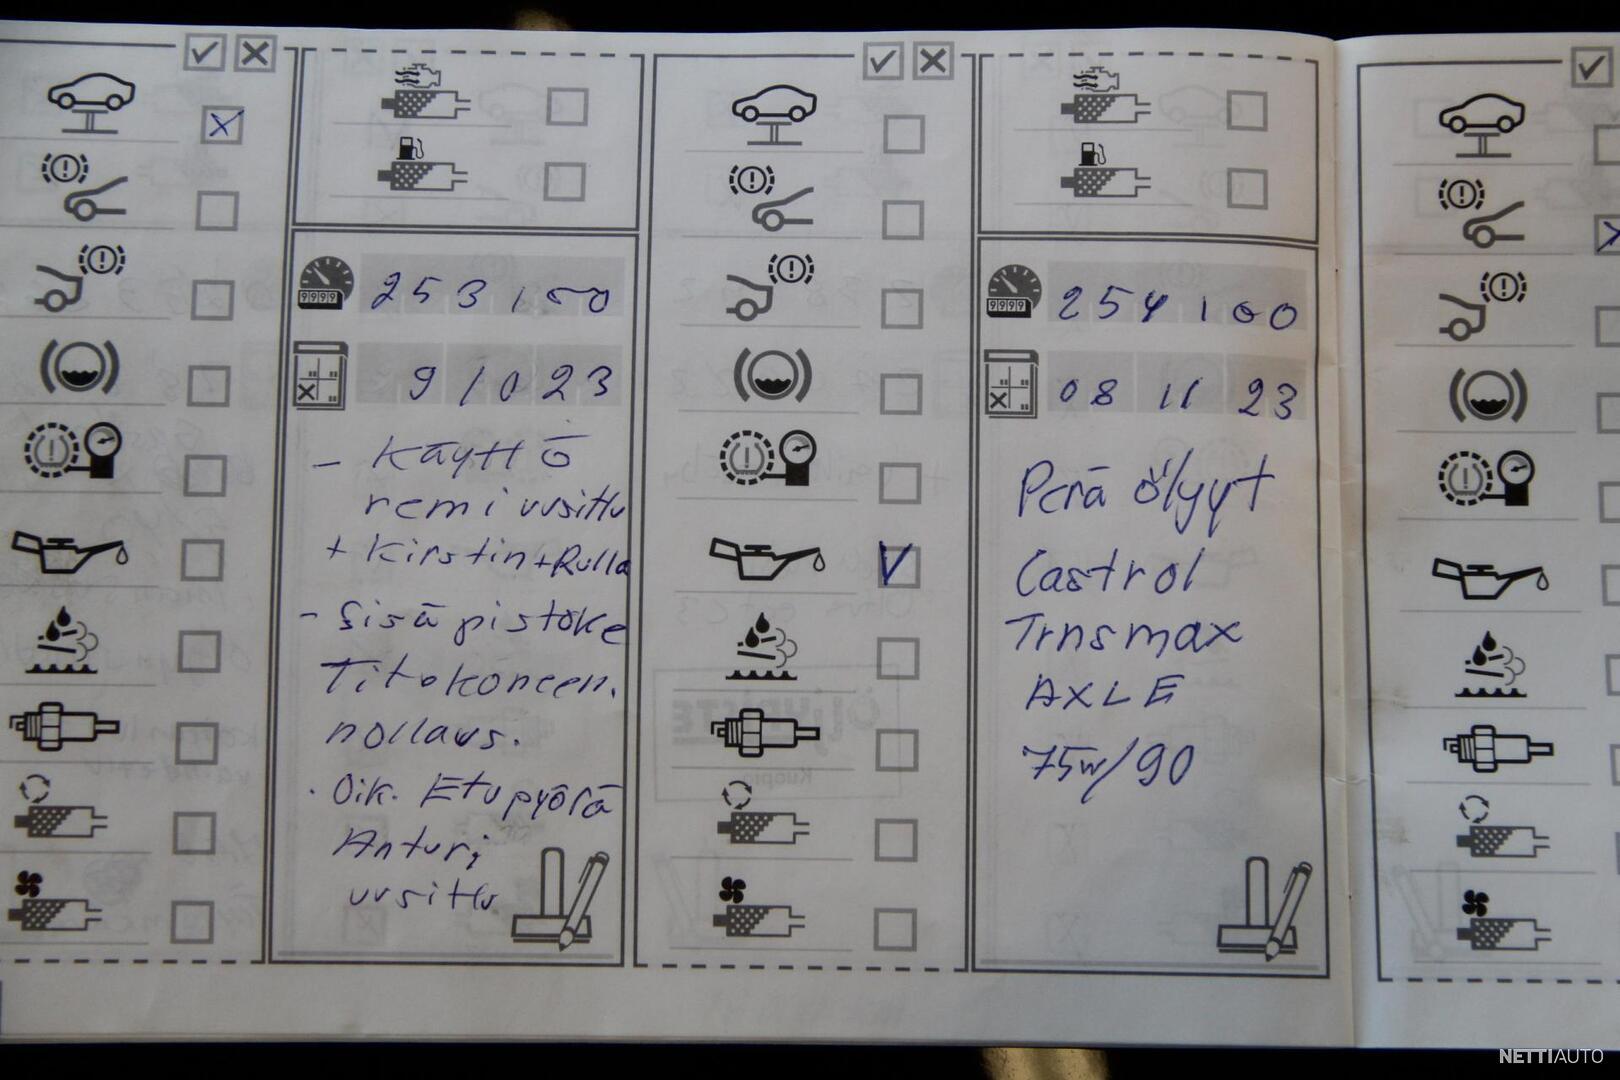 253 100
9 10 23
- Käyttö
remi uusittu
+ Kirstin + Rulla
- Sisä pistoke
Titokoneen.
nollaus.
· Oik. Etupyörä
Anturi
uusittu
254 100
08 11 23
Perä öljyyt
Castrol
Trnsmax
AXLE
75w/90
NETTIAUTO